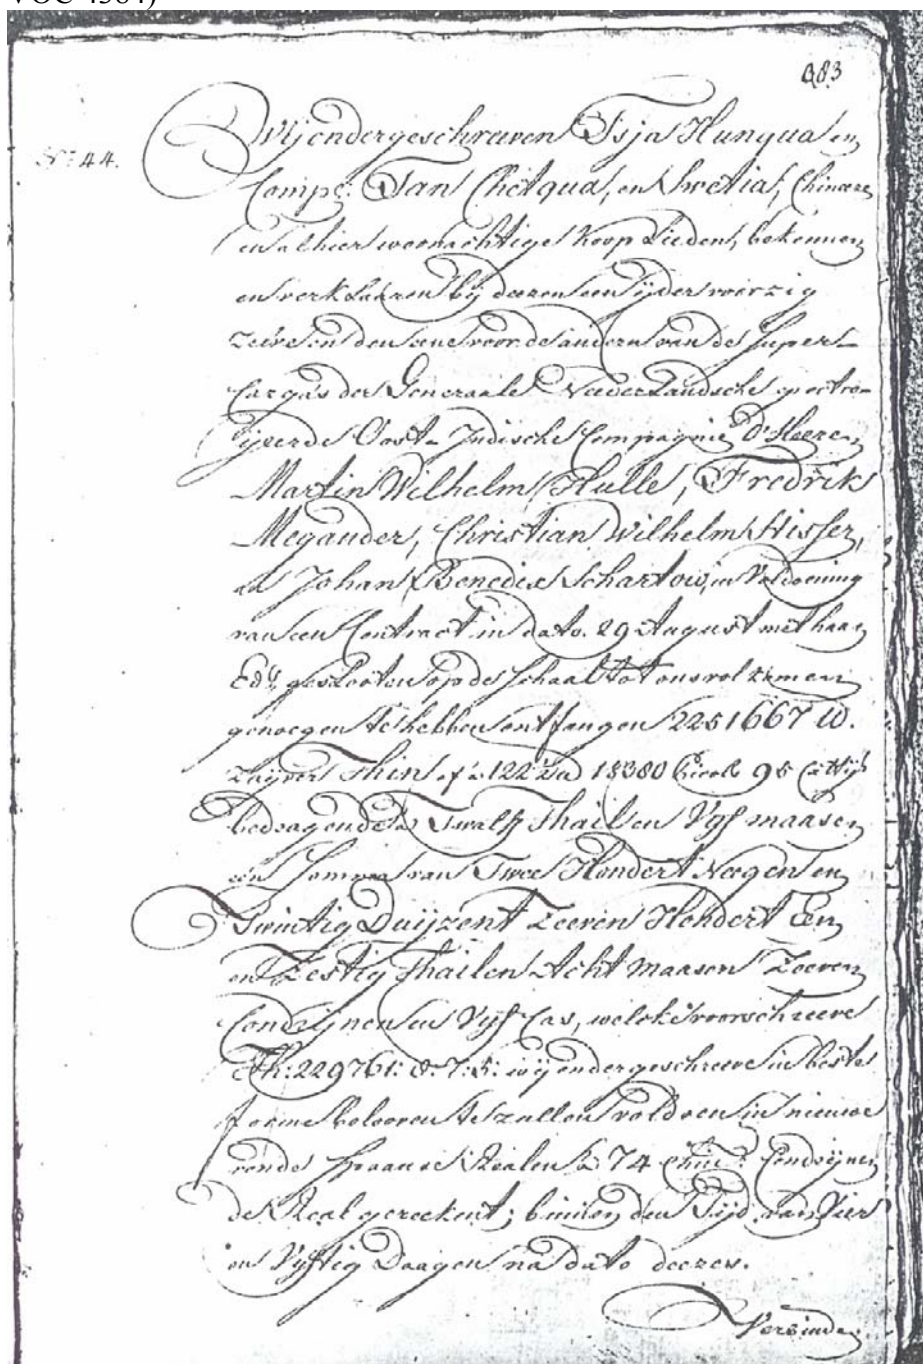 VOC 4384)
983
N:o 44.
Wij ondergeschreeven Tsja Hunqua en
Comp:e Tan Chetqua, en Swetia, Chineese
en alhier woonachtige Koop Lieden, bekennen
en verklaaren bij deezen een ijder voor zig
zelve en den eene voor de andern van de super-
Cargas der Generaale Nederlandsche geoctro-
ijeerde Oost-Indische Compagnie d'Heeren
Martin Wilhelm Hulle, Fredrik
Megander, Christian Wilhelm Hisser,
en Johan Benedix Schartow, in Voldoening
van een Contract in dato 29 August met haar
Ed:s geslooten op de schaal tot ons volkomen
genoegen te hebben ontfangen 2251667 lb.
zuijver Thin of à 122½ lb 18380 Picols 95 Cattijs
bedragende à Twalf Thail en Vijf maasen
een somma van Twee Hondert Neegen en
Twintig Duijzent Zeeven Hondert Een
en Zestig Thailen Acht maasen Zeeven
Condrijnen en Vijf Cas, welke voorschreeve
Th: 229761: 8: 7: 5: wij ondergeschreeve in beste
forme belooven te zullen voldoen in nieuwe
ronde spaanse Realen à 74 Chin: Condrijnen
de Real gereekent; binnen den Tijd van Vier
en Vijftig Daagen na dato deezes.
Verbinde